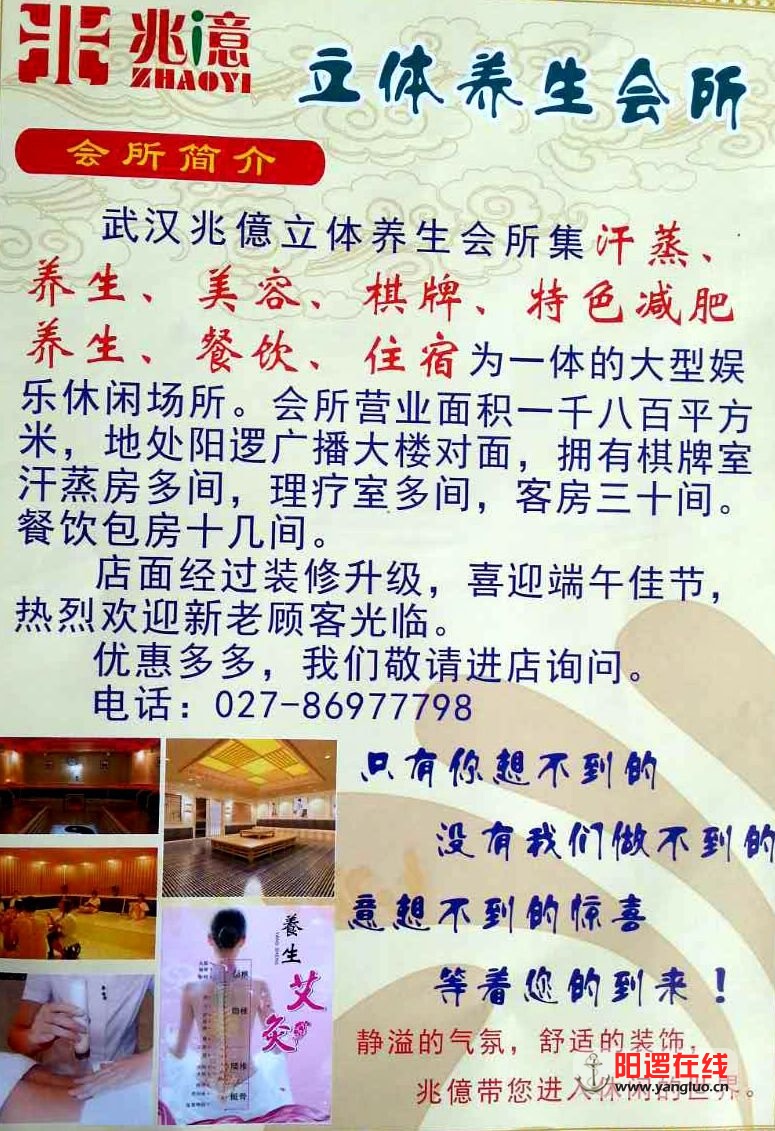 兆億
ZHAOYI
立体养生会所
会所简介
武汉兆億立体养生会所集汗蒸、
养生、美容、棋牌、特色减肥
养生、餐饮、住宿为一体的大型娱
乐休闲场所。会所营业面积一千八百平方
米，地处阳逻广播大楼对面，拥有棋牌室
汗蒸房多间，理疗室多间，客房三十间。
餐饮包房十几间。
店面经过装修升级，喜迎端午佳节，
热烈欢迎新老顾客光临。
优惠多多，我们敬请进店询问。
电话：027-86977798
只有你想不到的
没有我们做不到的
意想不到的惊喜
等着您的到来！
養生
YANG SHENG
艾灸
颈椎
胸椎
腰椎
骶骨
静溢的气氛，舒适的装饰，
兆億带您进入休闲的世界。
阳逻在线
www.yangluo.cn